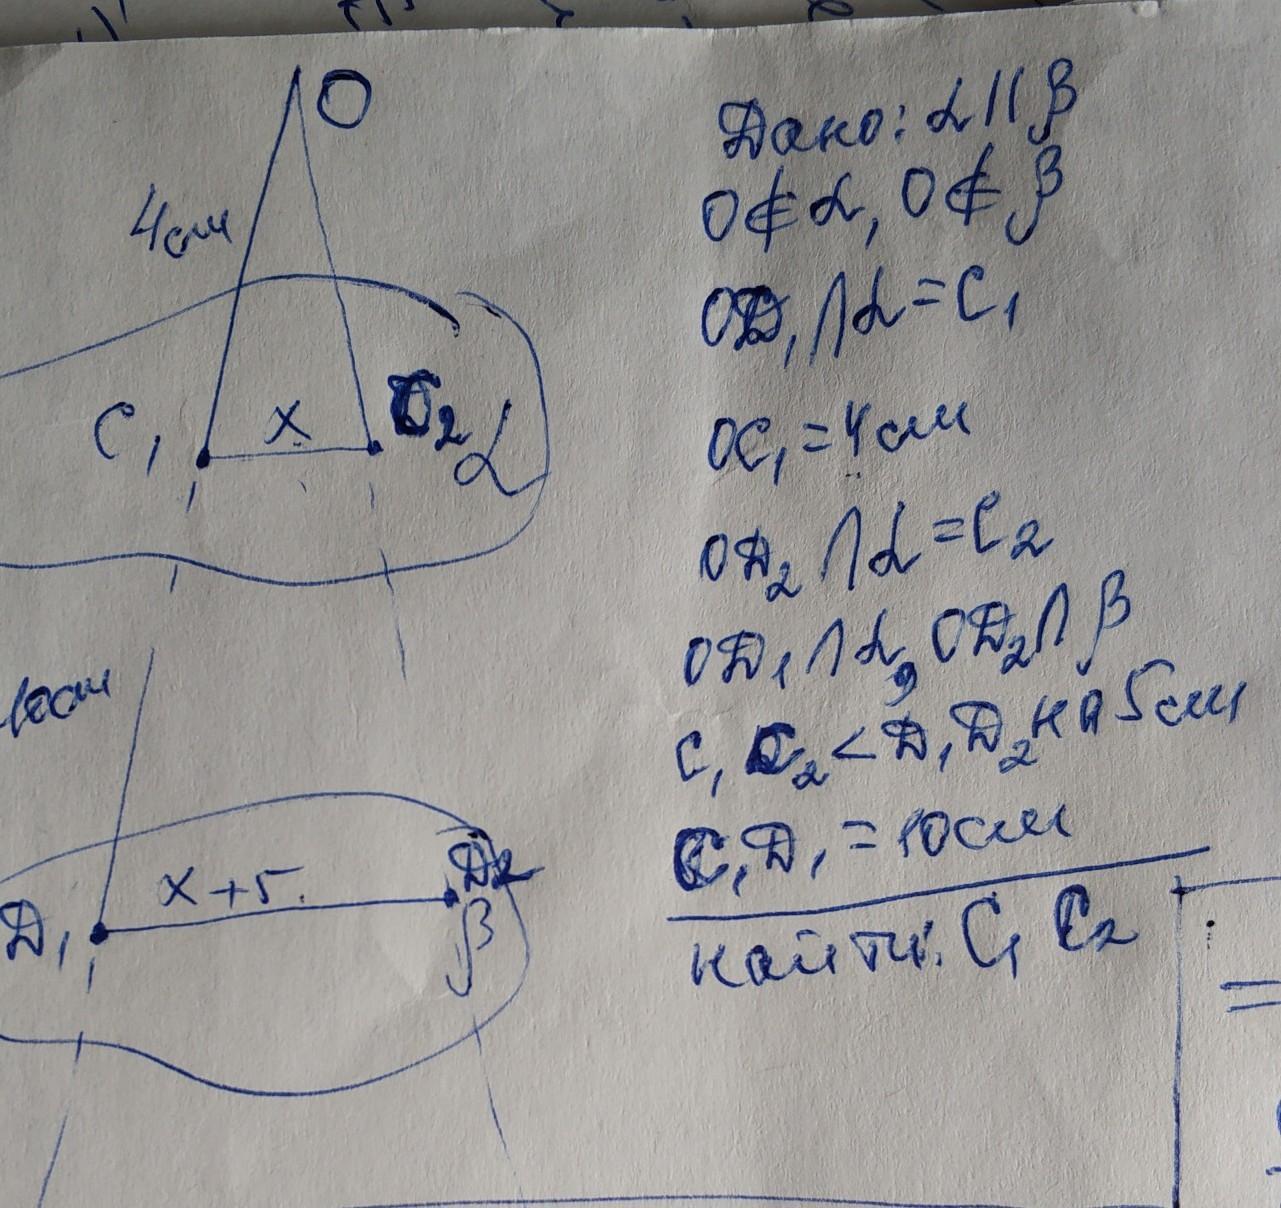 O
4см
C₁
x
C₂
α
10см
D₁
x+5
D₂
β
Дано: α || β
O∉α, O∉β
OD₁∩α=C₁
OC₁=4см
OD₂∩α=C₂
OD₁∩α, OD₂∩β
C₁C₂<D₁D₂ на 5см
C₁D₁=10см
найти: C₁C₂
=